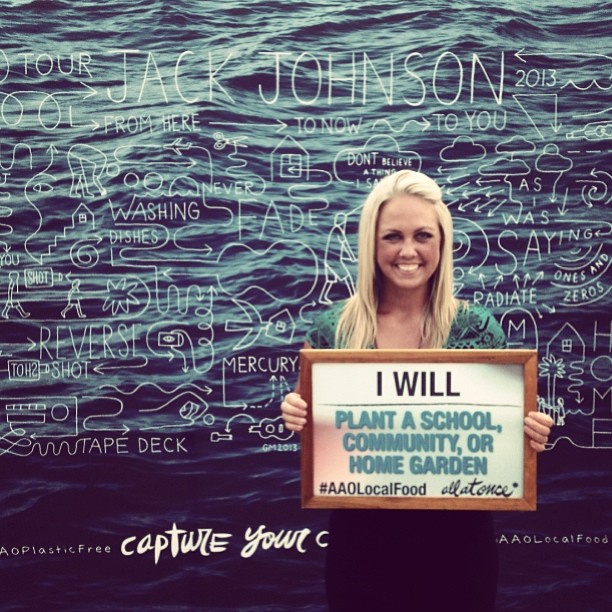 TOUR JACK JOHNSON 2013
FROM HERE TO NOW TO YOU
DONT BELIEVE
A THING
I
NEVER
AS
I
WASHING
FADE
WAS
DISHES
SAYING
YOU
SHOT
ONES AND
ZEROS
RADIATE
REVERSE
TOH2 SHOT
MERCURY
TAPE DECK
GM2013
I WILL
PLANT A SCHOOL,
COMMUNITY, OR
HOME GARDEN
#AAOLocalFood all at once*
AAOPlasticFree capture your c
AAOLocalFood